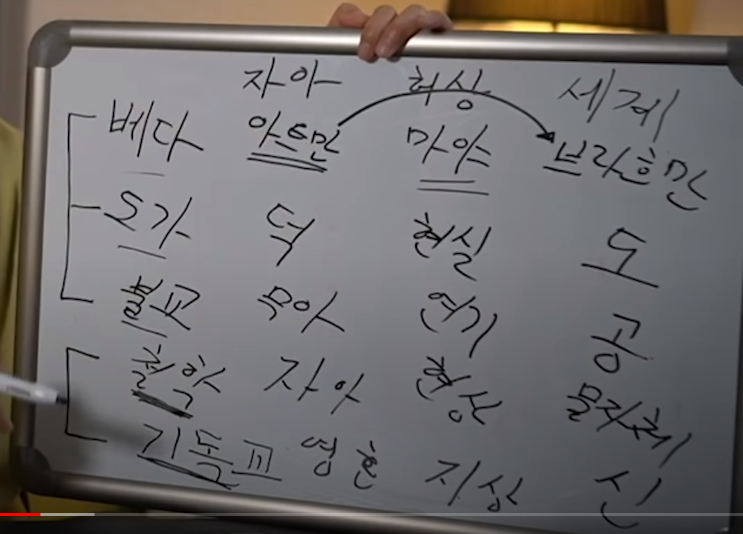 자아 허상 세계
베다 아트만 마야 브라흐만
도가 덕 현실 도
불교 무아 연기 공
철학 자아 현상 물자체
기독교 영혼 지상 신